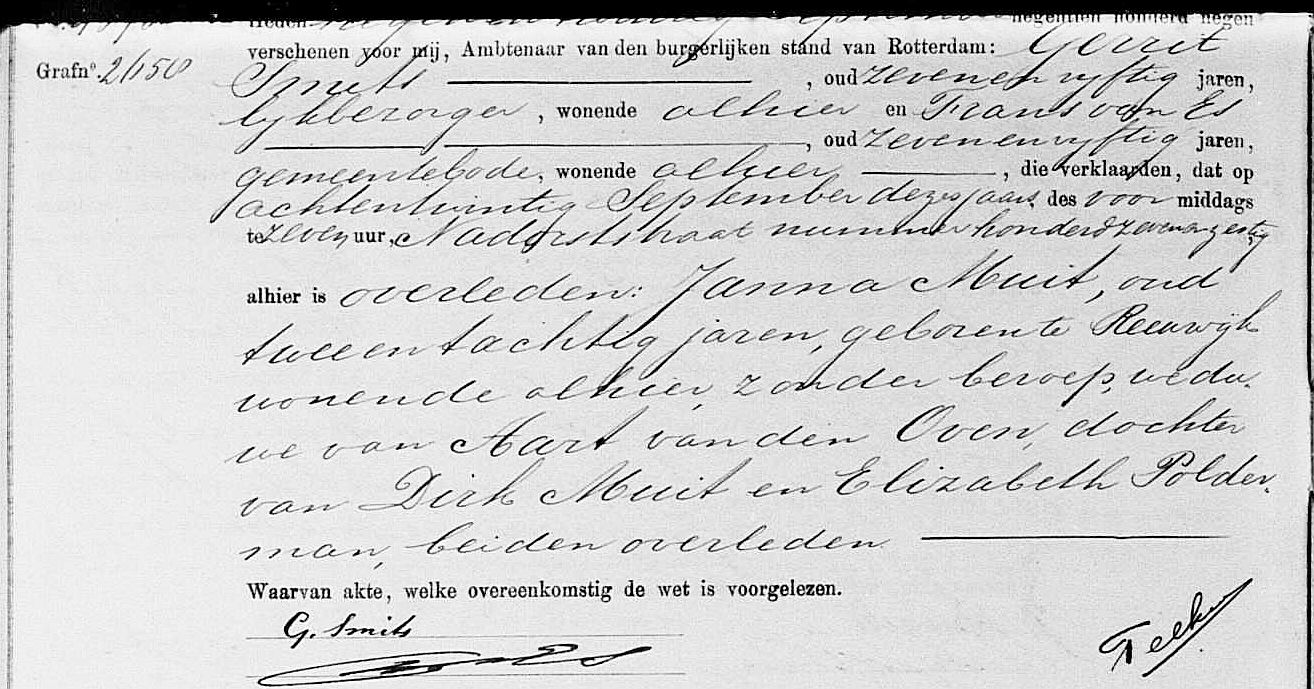 Heden negenentwintig September negentien honderd negen
verschenen voor mij, Ambtenaar van den burgerlijken stand van Rotterdam: Gerrit
Grafn°. 2/1150
Smits , oud zevenenvyftig jaren,
lykbezorger , wonende alhier en Frans van Es
, oud zevenenvyftig jaren,
gemeentebode, wonende alhier , die verklaarden, dat op
achtentwintig September dezes jaars, des voor middags
te zeven uur, straat nummer honderd zevenenzestig,
alhier is overleden: Janna Muit, oud
tweeentachtig jaren, geboren te Reeuwijk
wonende alhier, zonder beroep, wedu-
we van Aart van den Oven, dochter
van Dirk Muit en Elizabeth Polder-
man, beiden overleden.
Waarvan akte, welke overeenkomstig de wet is voorgelezen.
G. Smits